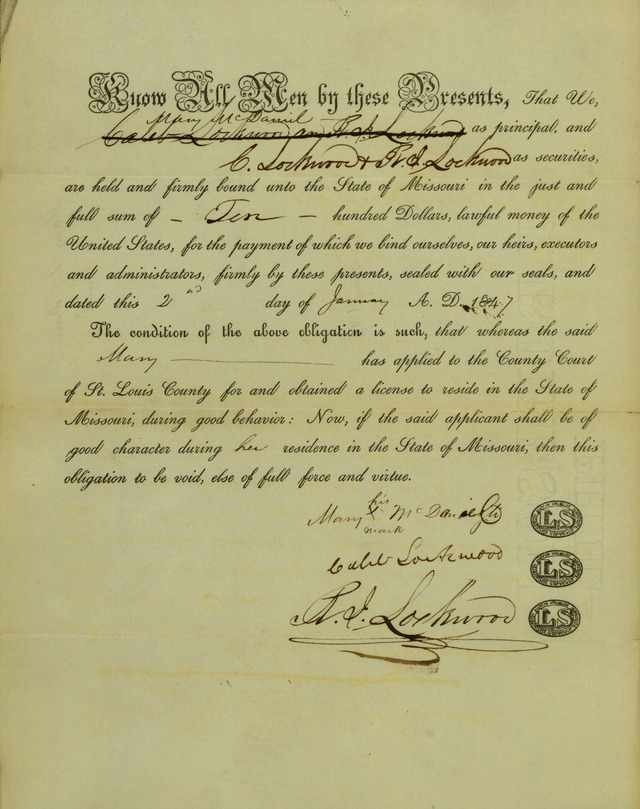 Know All Men by these Presents, That We,
Mary McDaniel
Caleb Lockwood and R. J. Lockwood as principal, and
C. Lockwood & R. J. Lockwood as securities,
are held and firmly bound unto the State of Missouri in the just and
full sum of – Ten – hundred Dollars, lawful money of the
United States, for the payment of which we bind ourselves, our heirs, executors
and administrators, firmly by these presents, sealed with our seals, and
dated this 2nd day of January A. D. 1847
The condition of the above obligation is such, that whereas the said
Mary has applied to the County Court
of St. Louis County for and obtained a license to reside in the State of
Missouri, during good behavior: Now, if the said applicant shall be of
good character during her residence in the State of Missouri, then this
obligation to be void, else of full force and virtue.
his
Mary X McDaniel LS
mark
Caleb Lockwood LS
R. J. Lockwood LS